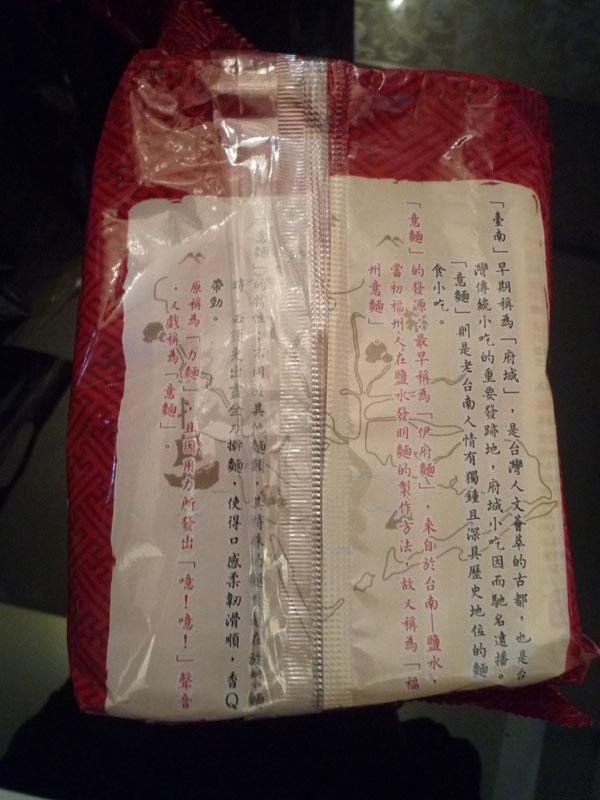 「臺南」早期稱為「府城」，是台灣人文薈萃的古都，也是台
灣傳統小吃的重要發跡地，府城小吃因而馳名遠播。
「意麵」則是老台南人情有獨鍾且深具歷史地位的麵
食小吃。
「意麵」的發源 最早稱為「伊府麵」，來自於台南—鹽水，
當初福州人在鹽水發明麵的製作方法，故又稱為「福
州意麵」
意麵」的 不同 其他麵
時， 使出 全力擀麵，使得口感柔韌滑順，香Q
帶勁。
原稱為「力麵」，且因用力所發出「噫！噫！」聲音
，又戲稱為「意麵」。